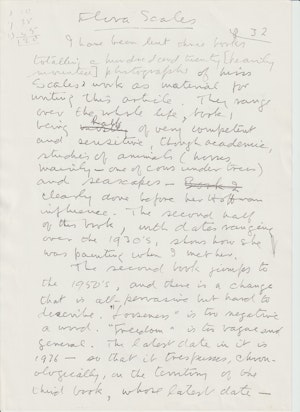 Flora Scales
32
I have been lent three books
totalling a hundred and twenty [heavily
mounted] photographs of Miss
Scales' work as material for
writing this article. They range
over the whole life, book 1
being half of very competent
and sensitive, though academic,
studies of animals (horses,
mainly - one of cows under trees)
and seascapes - Book 2
clearly done before her Hoffman
influence. The second half
of this book, with dates ranging
over the 1930's, shows how she
was painting when I met her.
The second book jumps to
the 1950's, and there is a change
that is all-pervasive but hard to
describe. "Looseness" is too negative
a word. "Freedom" is too vague and
general. The latest date in it is
1976 - so that it trespasses, chron-
ologically, on the territory of the
third book, whose latest date -